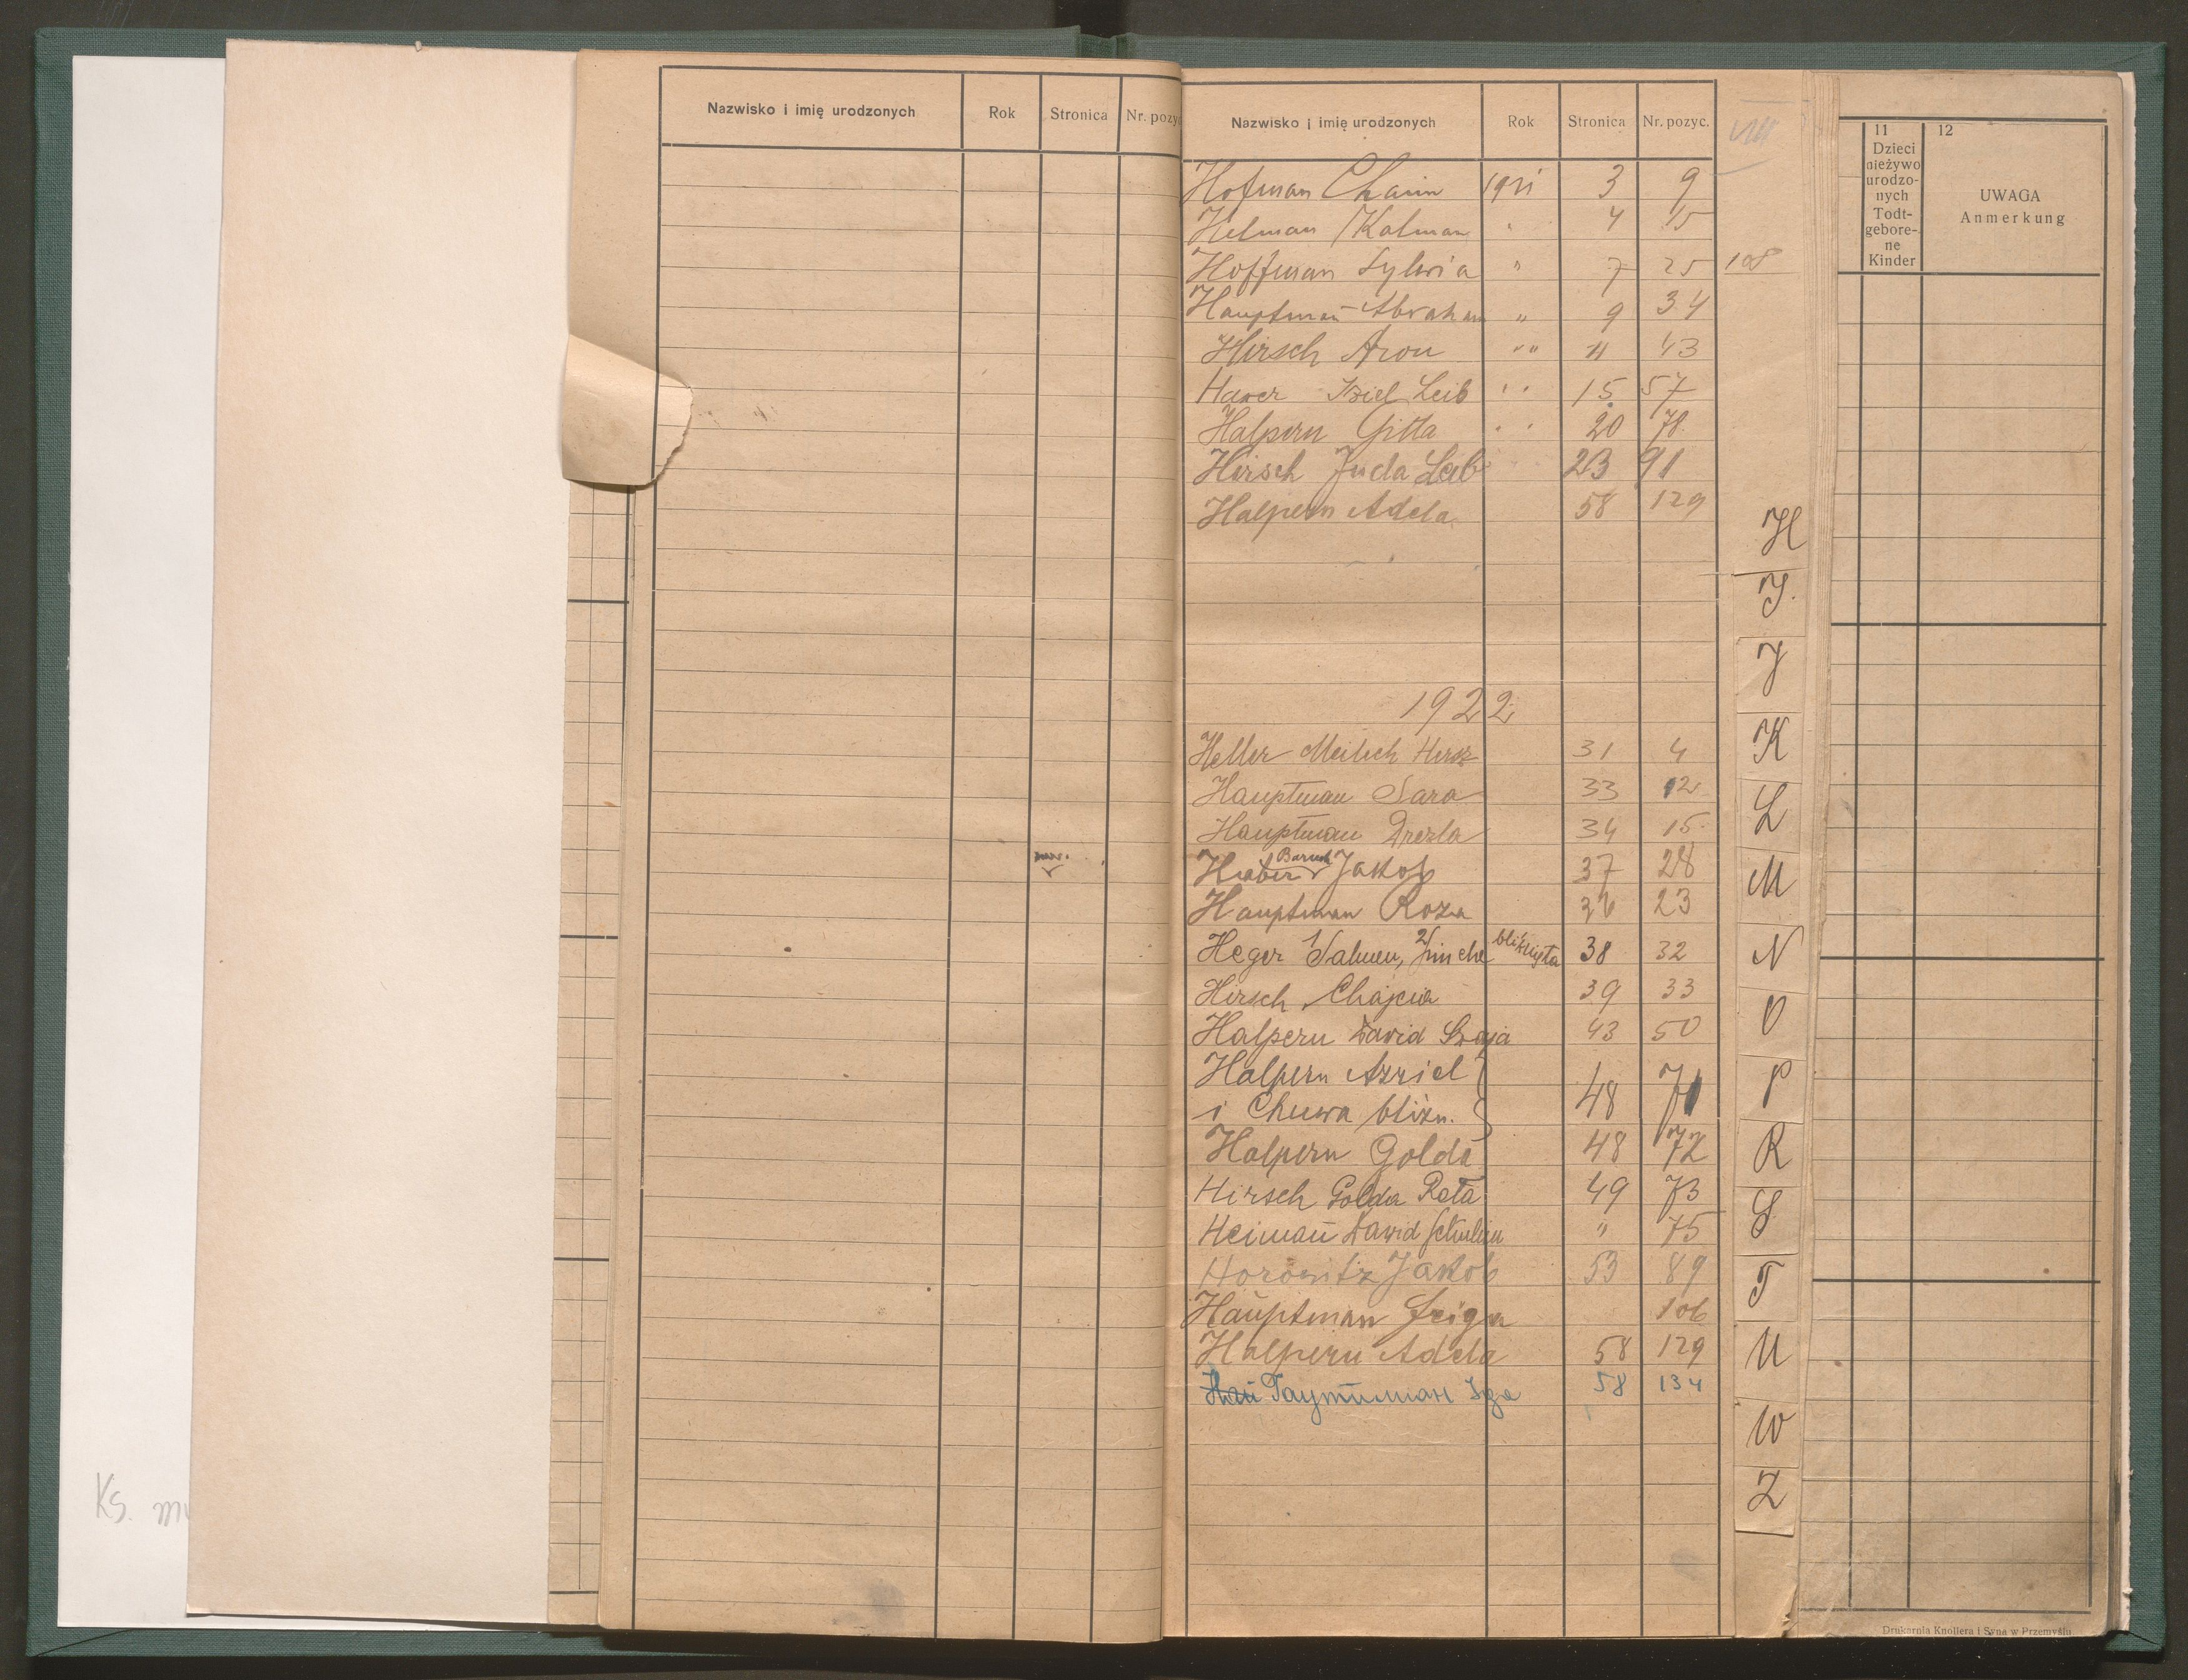 Nazwisko i imię urodzonych Rok Stronica Nr. pozyc
Nazwisko i imię urodzonych Rok Stronica Nr. pozyc.
VIII
Hofman Chaim 1921 3 9
Helman Kalman " 4 15
Hoffman Sylwia " 7 25 108
Hauptman Abraham " 9 34
Hirsch Aron " 11 43
Haver Leib " 15 57
Halpern Gitta " 20 78
Hirsch Juda Leib 23 91
Halpern Adela 58 129
1922
Heller Meilech Hersz 31 4
Hauptman Sara 33 12
Hauptman Drezla 34 15
Baruch
Huber Jakob 37 28
Hauptman Roza 36 23
Heger 1) Salmen, 2) bliźnięta 38 32
Hirsch Chajcia 39 33
Halpern Dawid Szaja 43 50
Halpern Azriel
i Chuwa bliźn. 48 71
Halpern Golda 48 72
Hirsch Golda Rata 49 73
Heiman Dawid " 75
Horowitz Jakob 53 89
Hauptman Feiga 106
Halpern Adela 58 129
Hau Гауптман Iza 58 134
H
I.
J
K
L
M
N
O
P
R
S
T
U
W
Z
11
Dzieci
nieżywo
urodzo-
nych
Todt-
gebore-
ne
Kinder
12
UWAGA
Anmerkung
Ks. mu
Drukarnia Knollera i Syna w Przemyślu